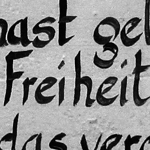 hast gel
Freiheit
das verg